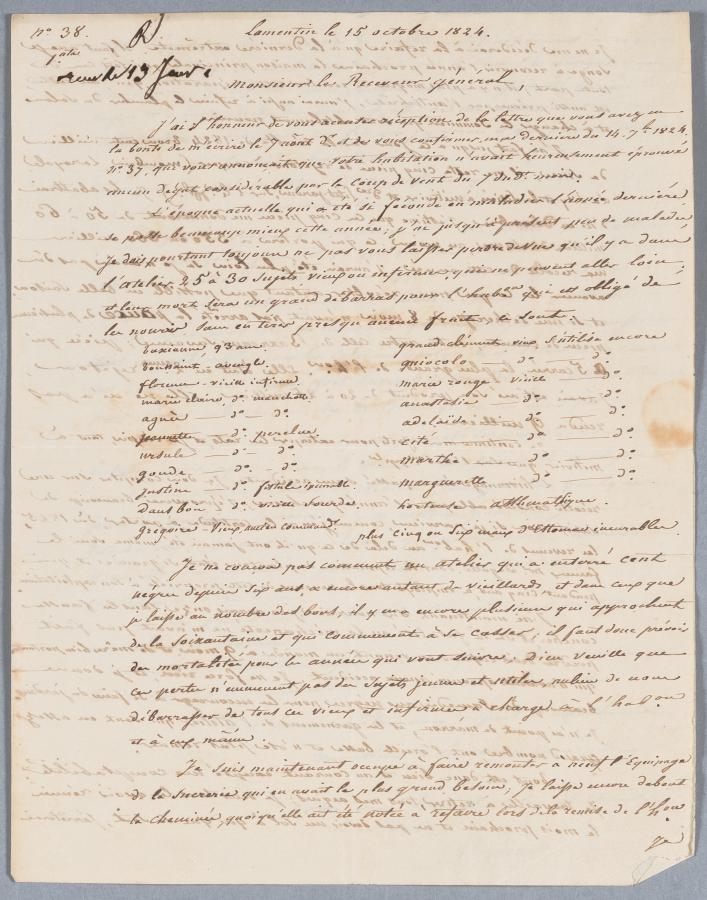 N° 38.
R
Lamentin le 15 octobre 1824.
recue le 13 Janv.
Monsieur le Receveur général,
J'ai l'honneur de vous accuser réception de la lettre que vous avez eu
la bonté de m'écrire le 7 aout dr. et de vous confirmer ma derniere du 14. 7bre 1824
N° 37, qui vous annonçait que votre habitation n'avait heureusement éprouvé
aucun dégat considerable par le coup de vent du 7 dud. mois.
L'époque actuelle qui a été si féconde en maladies l'année derniére
se porte beaucoup mieux cette année; j'ai jusqu'à présent peu de malades,
Je dois pourtant toujours ne pas vous laisser perdre de vue qu'il y a dans
l'atelier 25 à 30 Sujets vieux ou infirmes qui ne peuvent aller loin,
et leur mort sera un grand débarras pour l'habon qui est obligé de
les nourir sans en tirer presqu'aucun fruit. ce sont.
93 ans.
toussaint, aveugle
florence - vieille infirme
marie claire d°. manchotte
agnès — d° — d°.
jeannette — d°. percluse
ursule — d° — d°.
— d°. — d°.
justine — d°.
d°. vieille sourde.
grégoire - vieux, ancien commandr.
grand clement - vieux s'utilise encore
— d° — d°.
marie rouge vieille — d°.
anastasie — d° — d°.
adelaïde — d° — d°.
— d° — d°.
marthe — d° — d°.
marguerette — d° — d°.
hortense asthmatique
plus cinq ou six maux d'Estomac incurables.
Je ne conçois pas comment un atelier qui a enterré cent
négres depuis six ans, a encore autant de vieillards et dans ceux que
je laisse au nombre des bons, il y en a encore plusieurs qui approchent
de la soixantaine et qui commencent à se casser, il faut donc prévoir
des mortalités pour les années qui vont suivre, Dieu veuille que
ces pertes n'emmenent pas des sujets jeunes et utiles, au lieu de nous
débarrasser de tous ces vieux et infirmes à charge à l'habon
et à eux même.
Je suis maintenant occupé à faire remonter à neuf l'Equipage
de la Sucrerie qui en avait le plus grand besoin; je laisse encore debout
la cheminée, quoiqu'elle ait été notée à refaire lors de la remise de l'hon
je